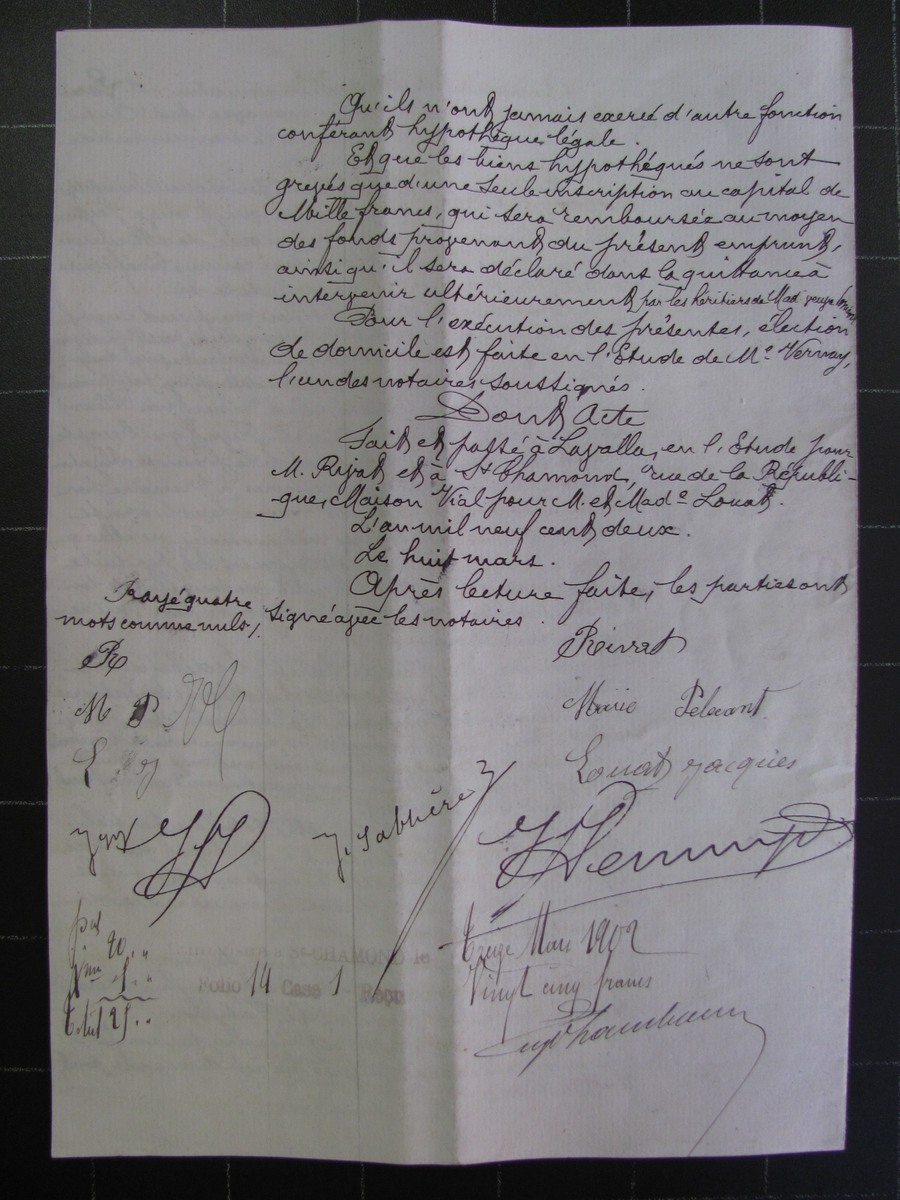 Qu'ils n'ont jamais exercé d'autre fonction
conférant hypothèque légale.
Et que les biens hypothéqués ne sont
grevés que d'une seule inscription au capital de
Mille francs, qui sera remboursée au moyen
des fonds provenant du présent emprunt,
ainsi qu'il sera déclaré dans la quittance à
intervenir ultérieurement par les héritiers de Mad. veuve
Pour l'exécution des présentes, élection
de domicile est faite en l'Etude de Me Vernay,
l'un des notaires soussignés.
Dont Acte
Fait et passé à Lavalla, en l'Etude pour
M. Rivat et à St Chamond, rue de la Républi-
que, Maison Vial pour M. et Made Louat.
L'an mil neuf cent deux.
Le huit mars.
Après lecture faite, les parties ont
signé avec les notaires.
Rayé quatre
mots comme nuls./.
R
Rivat
M P
Marie
L
Louat Jacques
Treize Mars 1902
St-CHAMOND le
Folio 14 Case 1 Reçu
Vingt cinq francs
20
5
Total 25